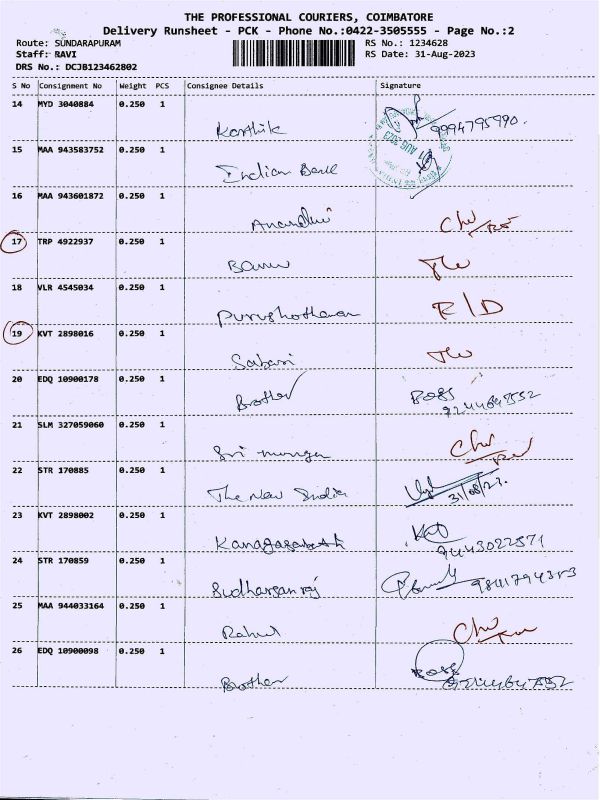 THE PROFESSIONAL COURIERS, COIMBATORE
Delivery Runsheet - PCK - Phone No.:0422-3505555 - Page No.:2
Route: SUNDARAPURAM RS No.: 1234628
Staff: RAVI RS Date: 31-Aug-2023
DRS No.: DCJB123462802
S No Consignment No Weight PCS Consignee Details Signature
14 MYD 3040884 0.250 1
Karthik 9994795990.
15 MAA 943583752 0.250 1
Indian Bank
16 MAA 943601872 0.250 1
Anandhi
17 TRP 4922937 0.250 1
Banu
18 VLR 4545034 0.250 1
Purushothaman R/D
19 KVT 2898016 0.250 1
Sabari
20 EDQ 10900178 0.250 1
Brother Boss
21 SLM 327059060 0.250 1
Sri murugan
22 STR 170885 0.250 1
The New India 31/08/23.
23 KVT 2898002 0.250 1
Kanagasabath 9443022571
24 STR 170859 0.250 1
Sudharsan raj
25 MAA 944033164 0.250 1
Rahul
26 EDQ 10900098 0.250 1
Brother Boss